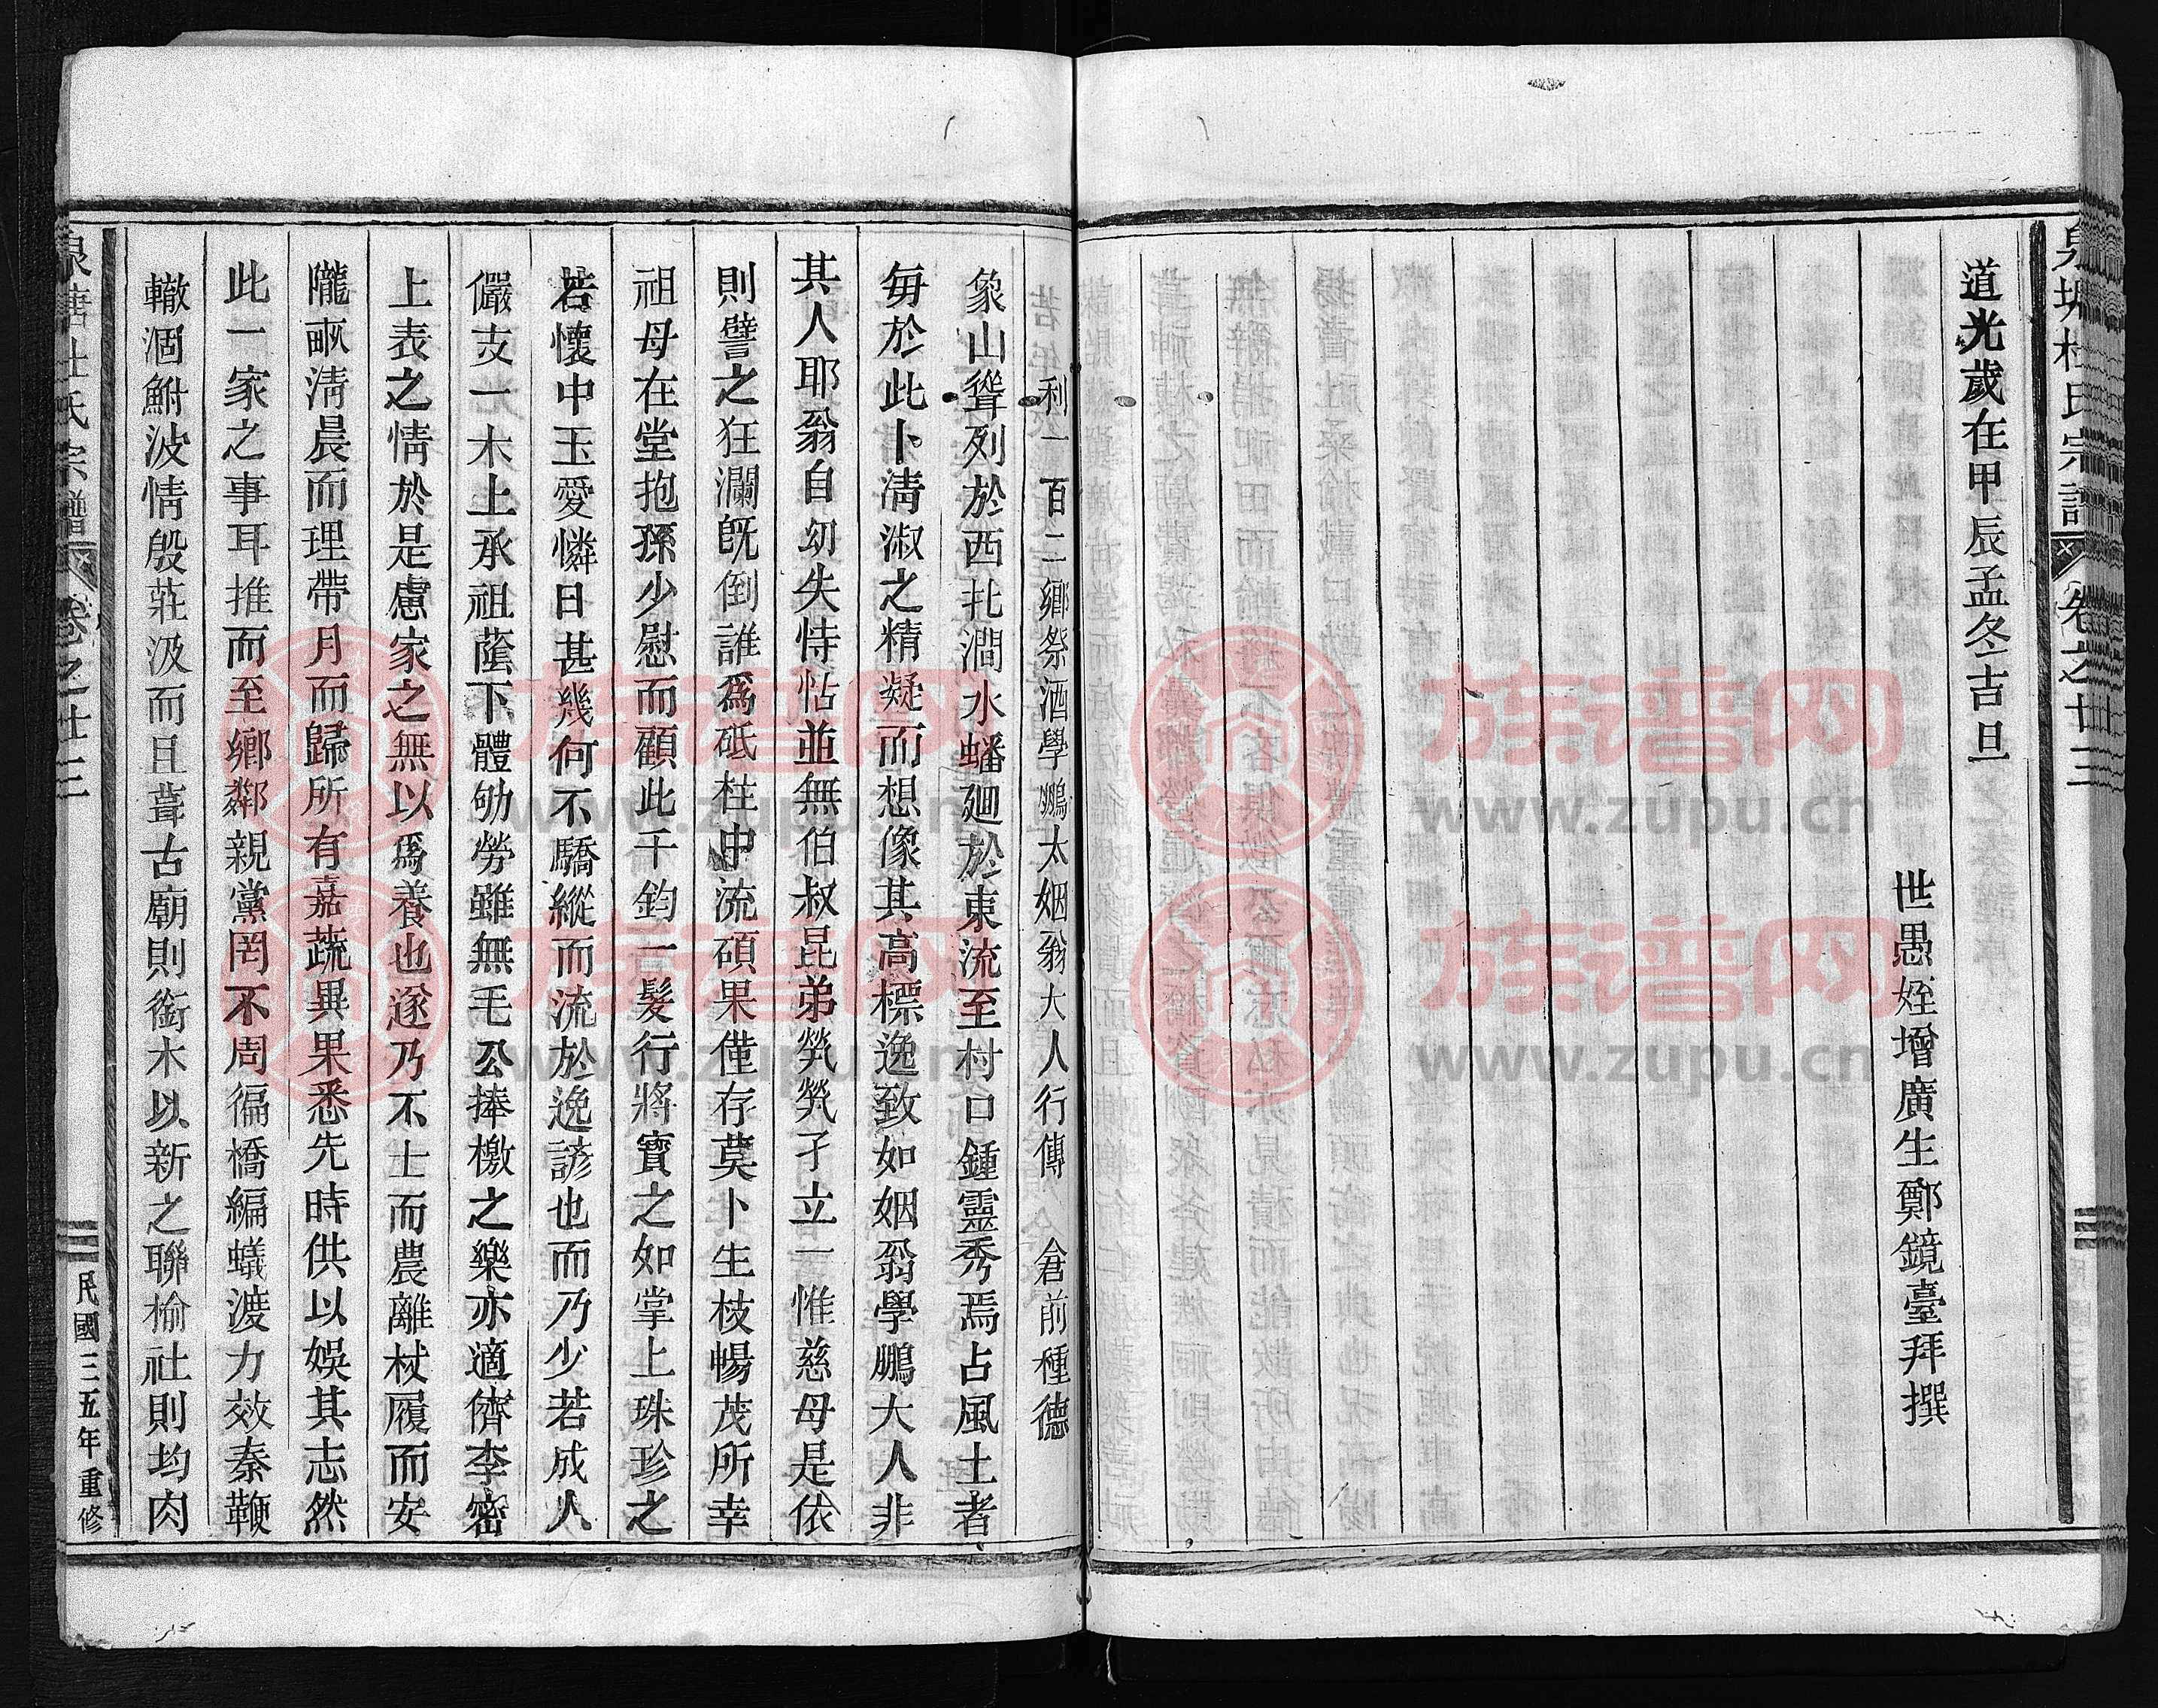 杜氏宗譜 卷之廿三
道光歲在甲辰孟冬吉旦
世愚姪增廣生鄭鏡臺拜撰
利一百二鄉祭酒學鵬太姻翁大人行傳 倉前種德
象山聳列於西北澗水蟠廻於東流至村口鍾靈秀焉占風土者
每於此卜清淑之精凝而想像其高標逸致如姻翁學鵬大人非
其人耶翁自幼失恃怙並無伯叔昆弟煢煢孑立一惟慈母是依
則譬之狂瀾旣倒誰爲砥柱中流碩果僅存莫卜生枝暢茂所幸
祖母在堂抱孫少慰而顧此千鈞一髮行將寶之如掌上珠珍之
若懷中玉愛憐日甚幾何不驕縱而流於逸諺也而乃少若成人
儼支一木上承祖蔭下體劬勞雖無毛公捧檄之樂亦適儕李密
上表之情於是慮家之無以爲養也遂乃不士而農離杖履而安
隴畝清晨而理帶月而歸所有嘉蔬異果悉先時供以娛其志然
此一家之事耳推而至鄉鄰親黨罔不周徧橋編蟻渡力效秦鞭
轍涸鮒波情殷莊汲而且葺古廟則銜木以新之聯榆社則均肉
泉塘杜氏宗譜 卷之廿三 民國三五年重修
族谱网
www.zupu.cn
族谱网
www.zupu.cn
族谱网
www.zupu.cn
族谱网
www.zupu.cn